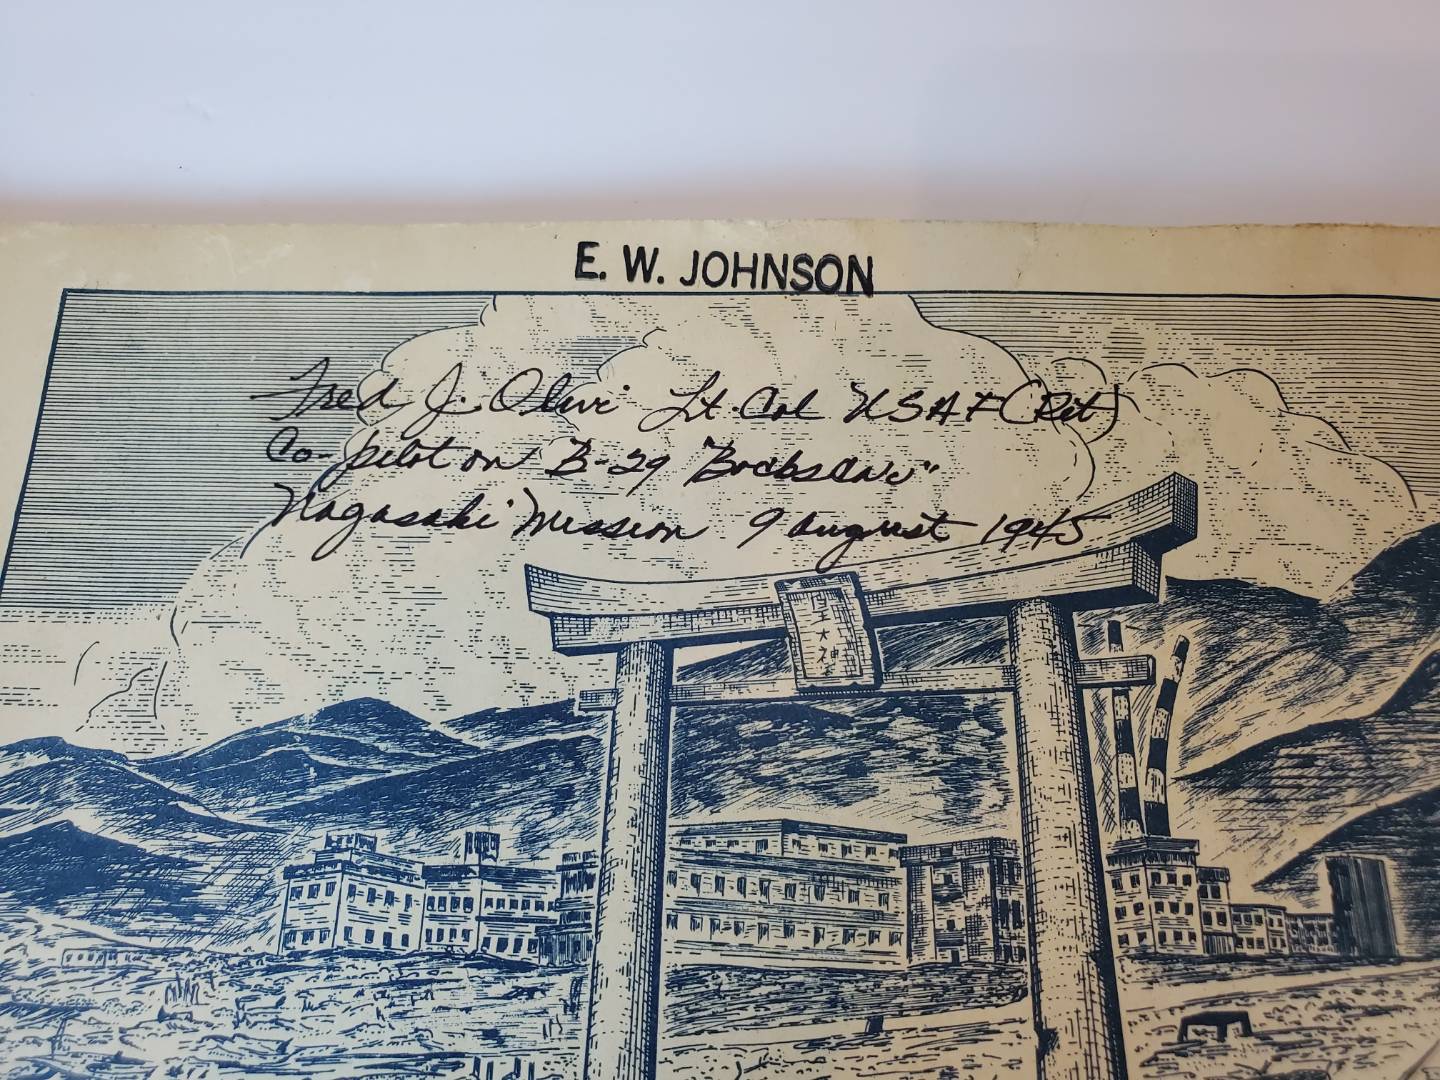 E. W. JOHNSON
Fred J. Olivi Lt. Col USAF (Ret)
Co-pilot on B-29 "Bockscar"
Nagasaki Mission 9 August 1945
皇大神宮